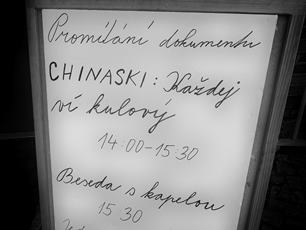 Promítání dokumentu
CHINASKI: Každej
ví kulový
14:00-15:30
Beseda s kapelou
15 30